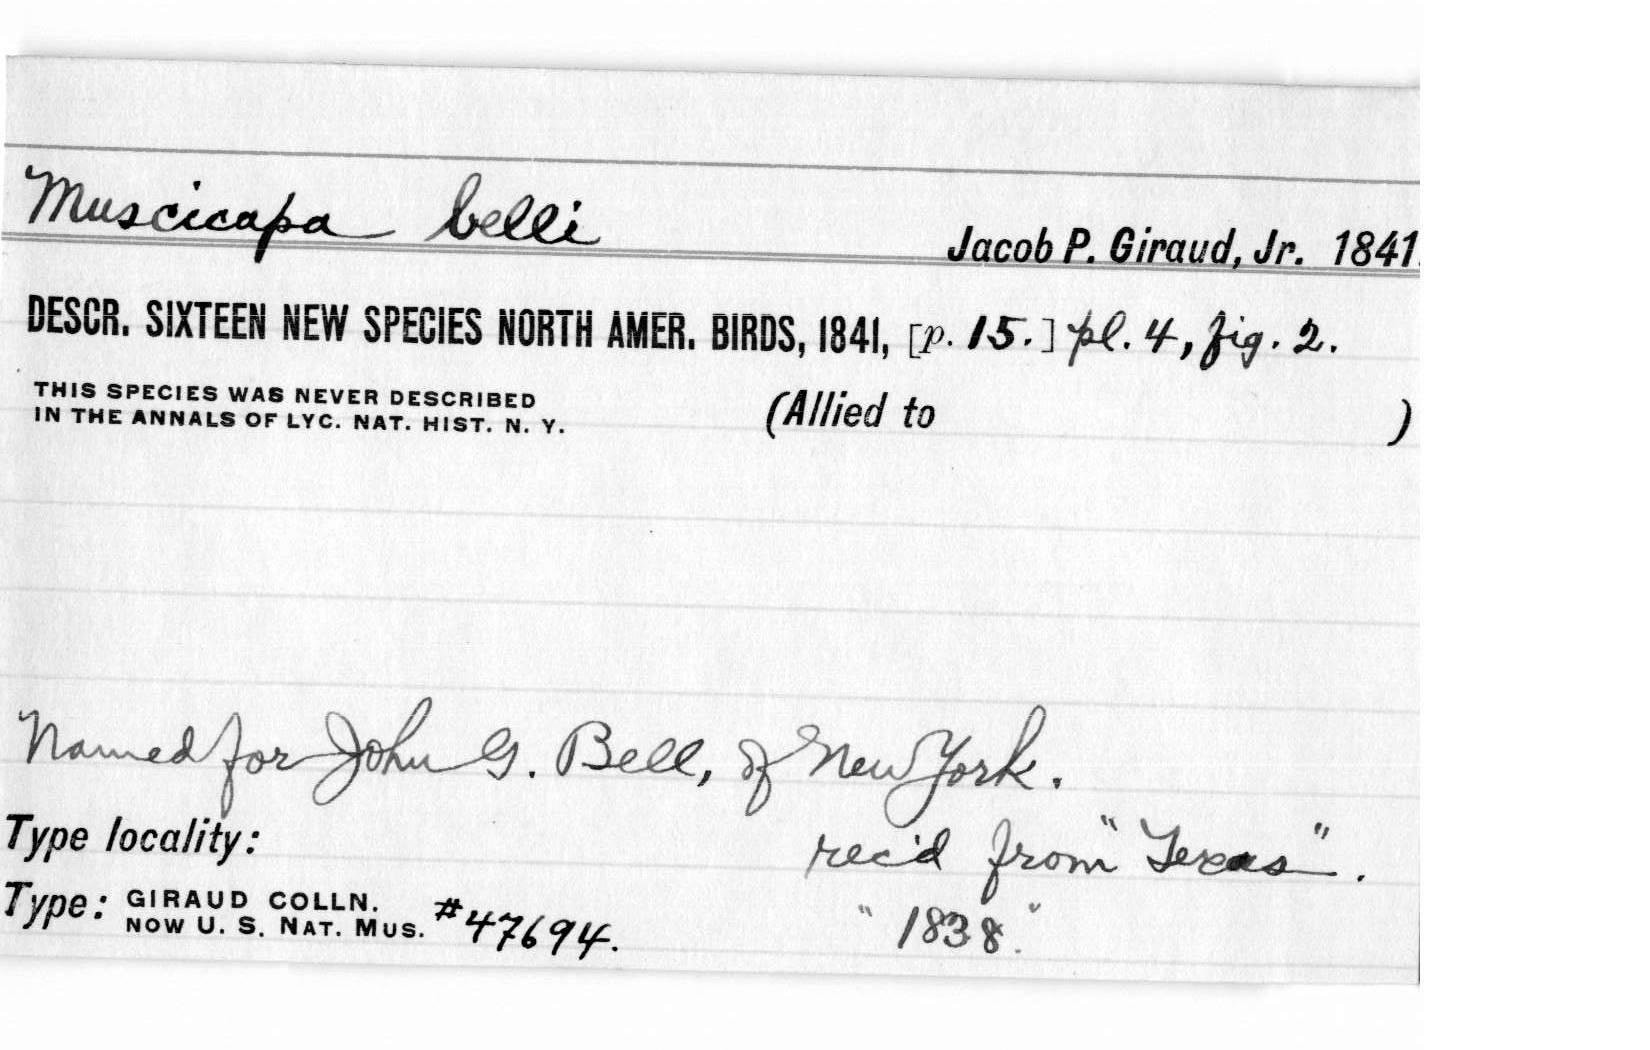 Muscicapa belli
Jacob P. Giraud, Jr. 1841.
DESCR. SIXTEEN NEW SPECIES NORTH AMER. BIRDS, 1841, [p. 15.] pl. 4, fig. 2.
THIS SPECIES WAS NEVER DESCRIBED
IN THE ANNALS OF LYC. NAT. HIST. N. Y.
(Allied to )
Named for John G. Bell, of New York.
Type locality: rec'd from "Texas".
Type: GIRAUD COLLN.
NOW U. S. NAT. MUS. #47694. "1838."